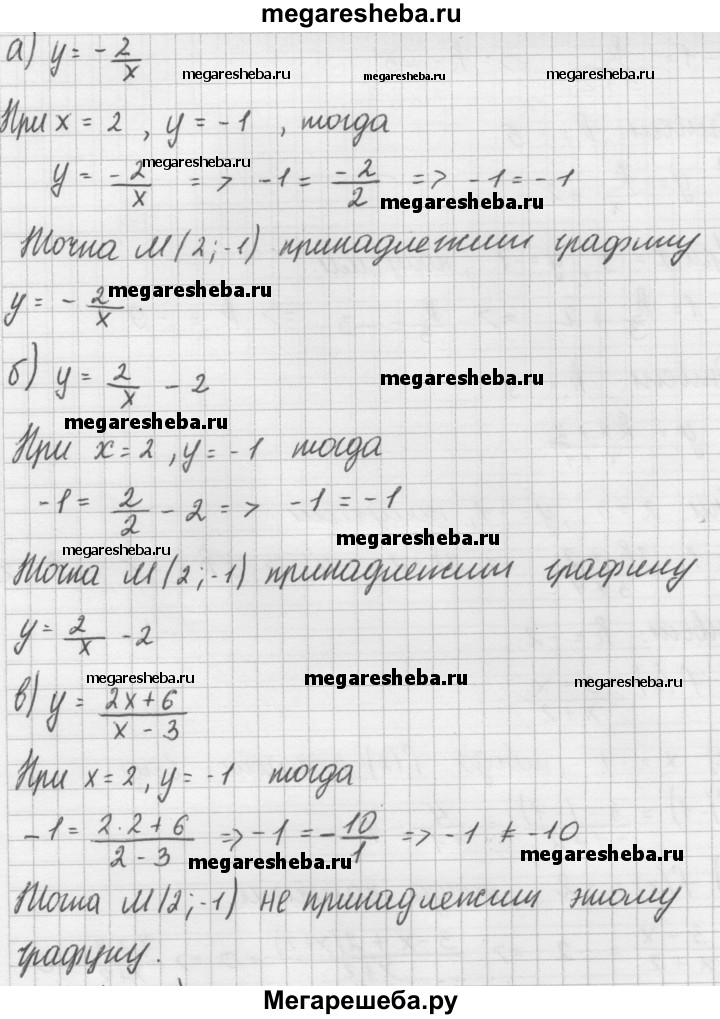 megaresheba.ru
а) y = - 2/x
megaresheba.ru megaresheba.ru megaresheba.ru
При x = 2 , y = -1 , тогда
megaresheba.ru
y = -2/x => -1 = -2/2 => -1 = -1
megaresheba.ru
Точка M(2;-1) принадлежит графику
megaresheba.ru
y = - 2/x .
б) y = 2/x - 2
megaresheba.ru
megaresheba.ru
При x = 2 , y = -1 тогда
-1 = 2/2 - 2 => -1 = -1
megaresheba.ru megaresheba.ru
Точка M(2;-1) принадлежит графику
y = 2/x - 2
megaresheba.ru megaresheba.ru megaresheba.ru
в) y = 2x+6/x - 3
При x = 2, y = -1 тогда
-1 = 2·2+6/2-3 => -1 = -10/1 => -1 ≠ -10
megaresheba.ru megaresheba.ru
Точка M(2;-1) не принадлежит этому
графику.
Мегарешеба.ру